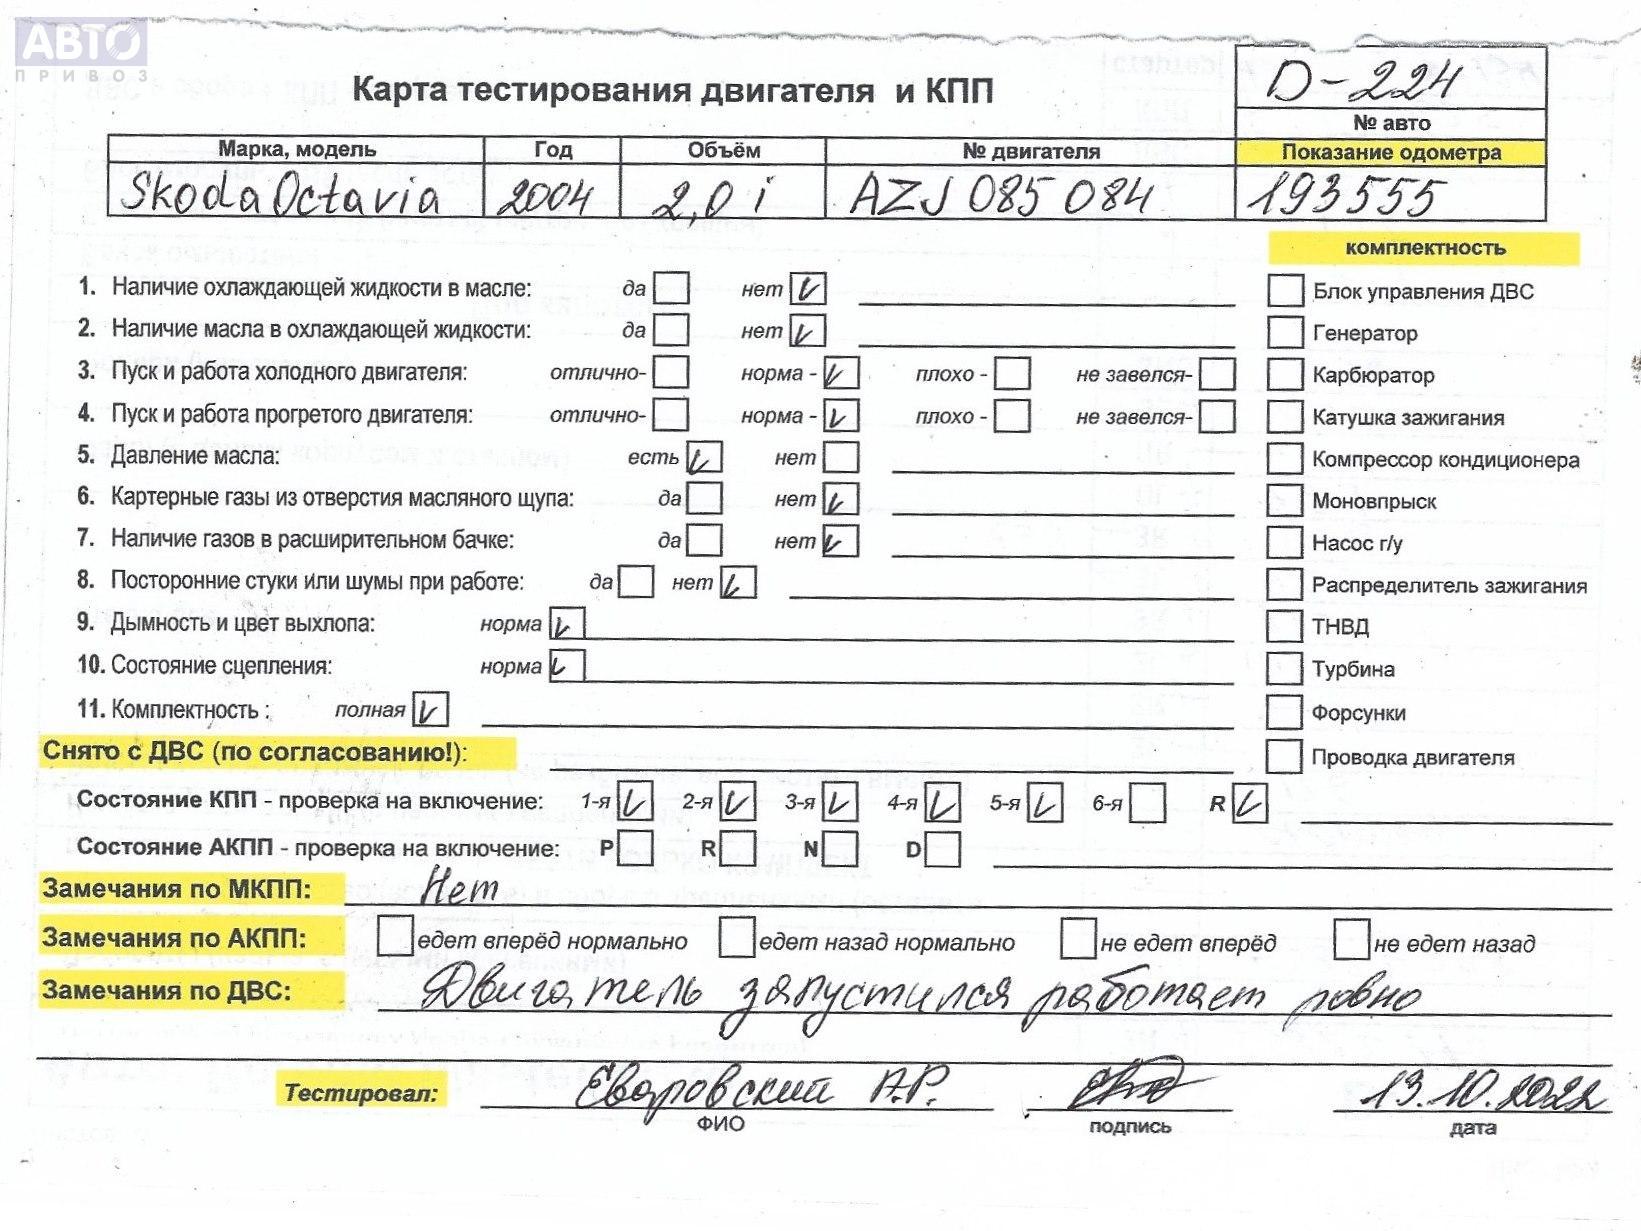 АВТО
ПРИВОЗ
Карта тестирования двигателя и КПП
D-224
№ авто
Марка, модель Год Объём № двигателя Показание одометра
Skoda Octavia 2004 2,0 i AZJ 085 084 193555
комплектность
1. Наличие охлаждающей жидкости в масле: да нет Блок управления ДВС
2. Наличие масла в охлаждающей жидкости: да нет Генератор
3. Пуск и работа холодного двигателя: отлично- норма - плохо - не завелся- Карбюратор
4. Пуск и работа прогретого двигателя: отлично- норма - плохо - не завелся- Катушка зажигания
5. Давление масла: есть нет Компрессор кондиционера
6. Картерные газы из отверстия масляного щупа: да нет Моновпрыск
7. Наличие газов в расширительном бачке: да нет Насос г/у
8. Посторонние стуки или шумы при работе: да нет Распределитель зажигания
9. Дымность и цвет выхлопа: норма ТНВД
10. Состояние сцепления: норма Турбина
11. Комплектность : полная Форсунки
Снято с ДВС (по согласованию!): Проводка двигателя
Состояние КПП - проверка на включение: 1-я 2-я 3-я 4-я 5-я 6-я R
Состояние АКПП - проверка на включение: P R N D
Замечания по МКПП: Нет
Замечания по АКПП: едет вперёд нормально едет назад нормально не едет вперёд не едет назад
Замечания по ДВС: Двигатель запустился работает ровно
Тестировал: А.Р. 13.10.2022
ФИО подпись дата